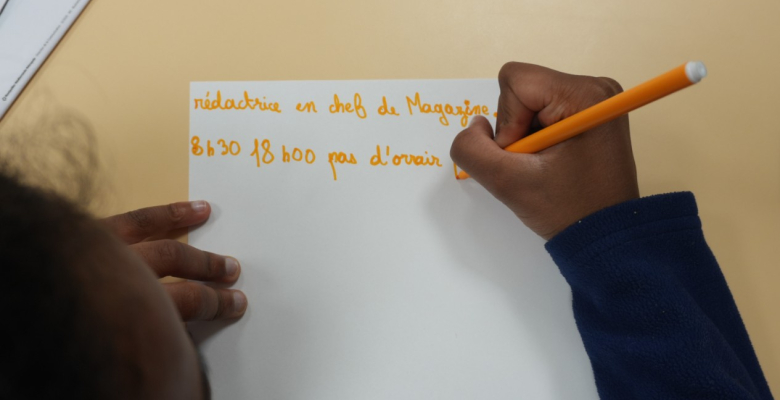 rédactrice en chef de Magazine.
8h30 18h00 pas d'orrair